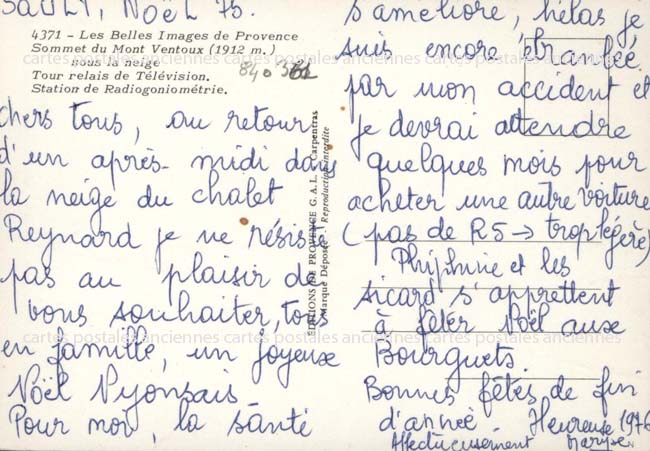 SAULT, NOËL 75.
4371 - Les Belles Images de Provence
Sommet du Mont Ventoux (1912 m.)
sous la neige
Tour relais de Télévision.
Station de Radiogoniométrie.
chers tous, au retour
d'un après-midi dans
la neige du chalet
Reynard je ne résiste
pas au plaisir de
vous souhaiter, tous
en famille, un joyeux
Noël Nyonsais
Pour moi, la santé
ÉDITIONS DE PROVENCE G.A.L. - Carpentras
Marque Déposée - Reproduction interdite
s'améliore, hélas je
suis encore étranglée
par mon accident et
je devrai attendre
quelques mois pour
acheter une autre voiture
(pas de R5 → trop légère)
et les
Sicard s'apprettent
à fêter Noël aux
Bourguets.
Bonnes fêtes de fin
d'année. Heureuse 1976
Affectueusement Maryse
cartes postales anciennes cartes postales anciennes cartes postales anciennes
cartes postales anciennes cartes postales anciennes cartes postales anciennes